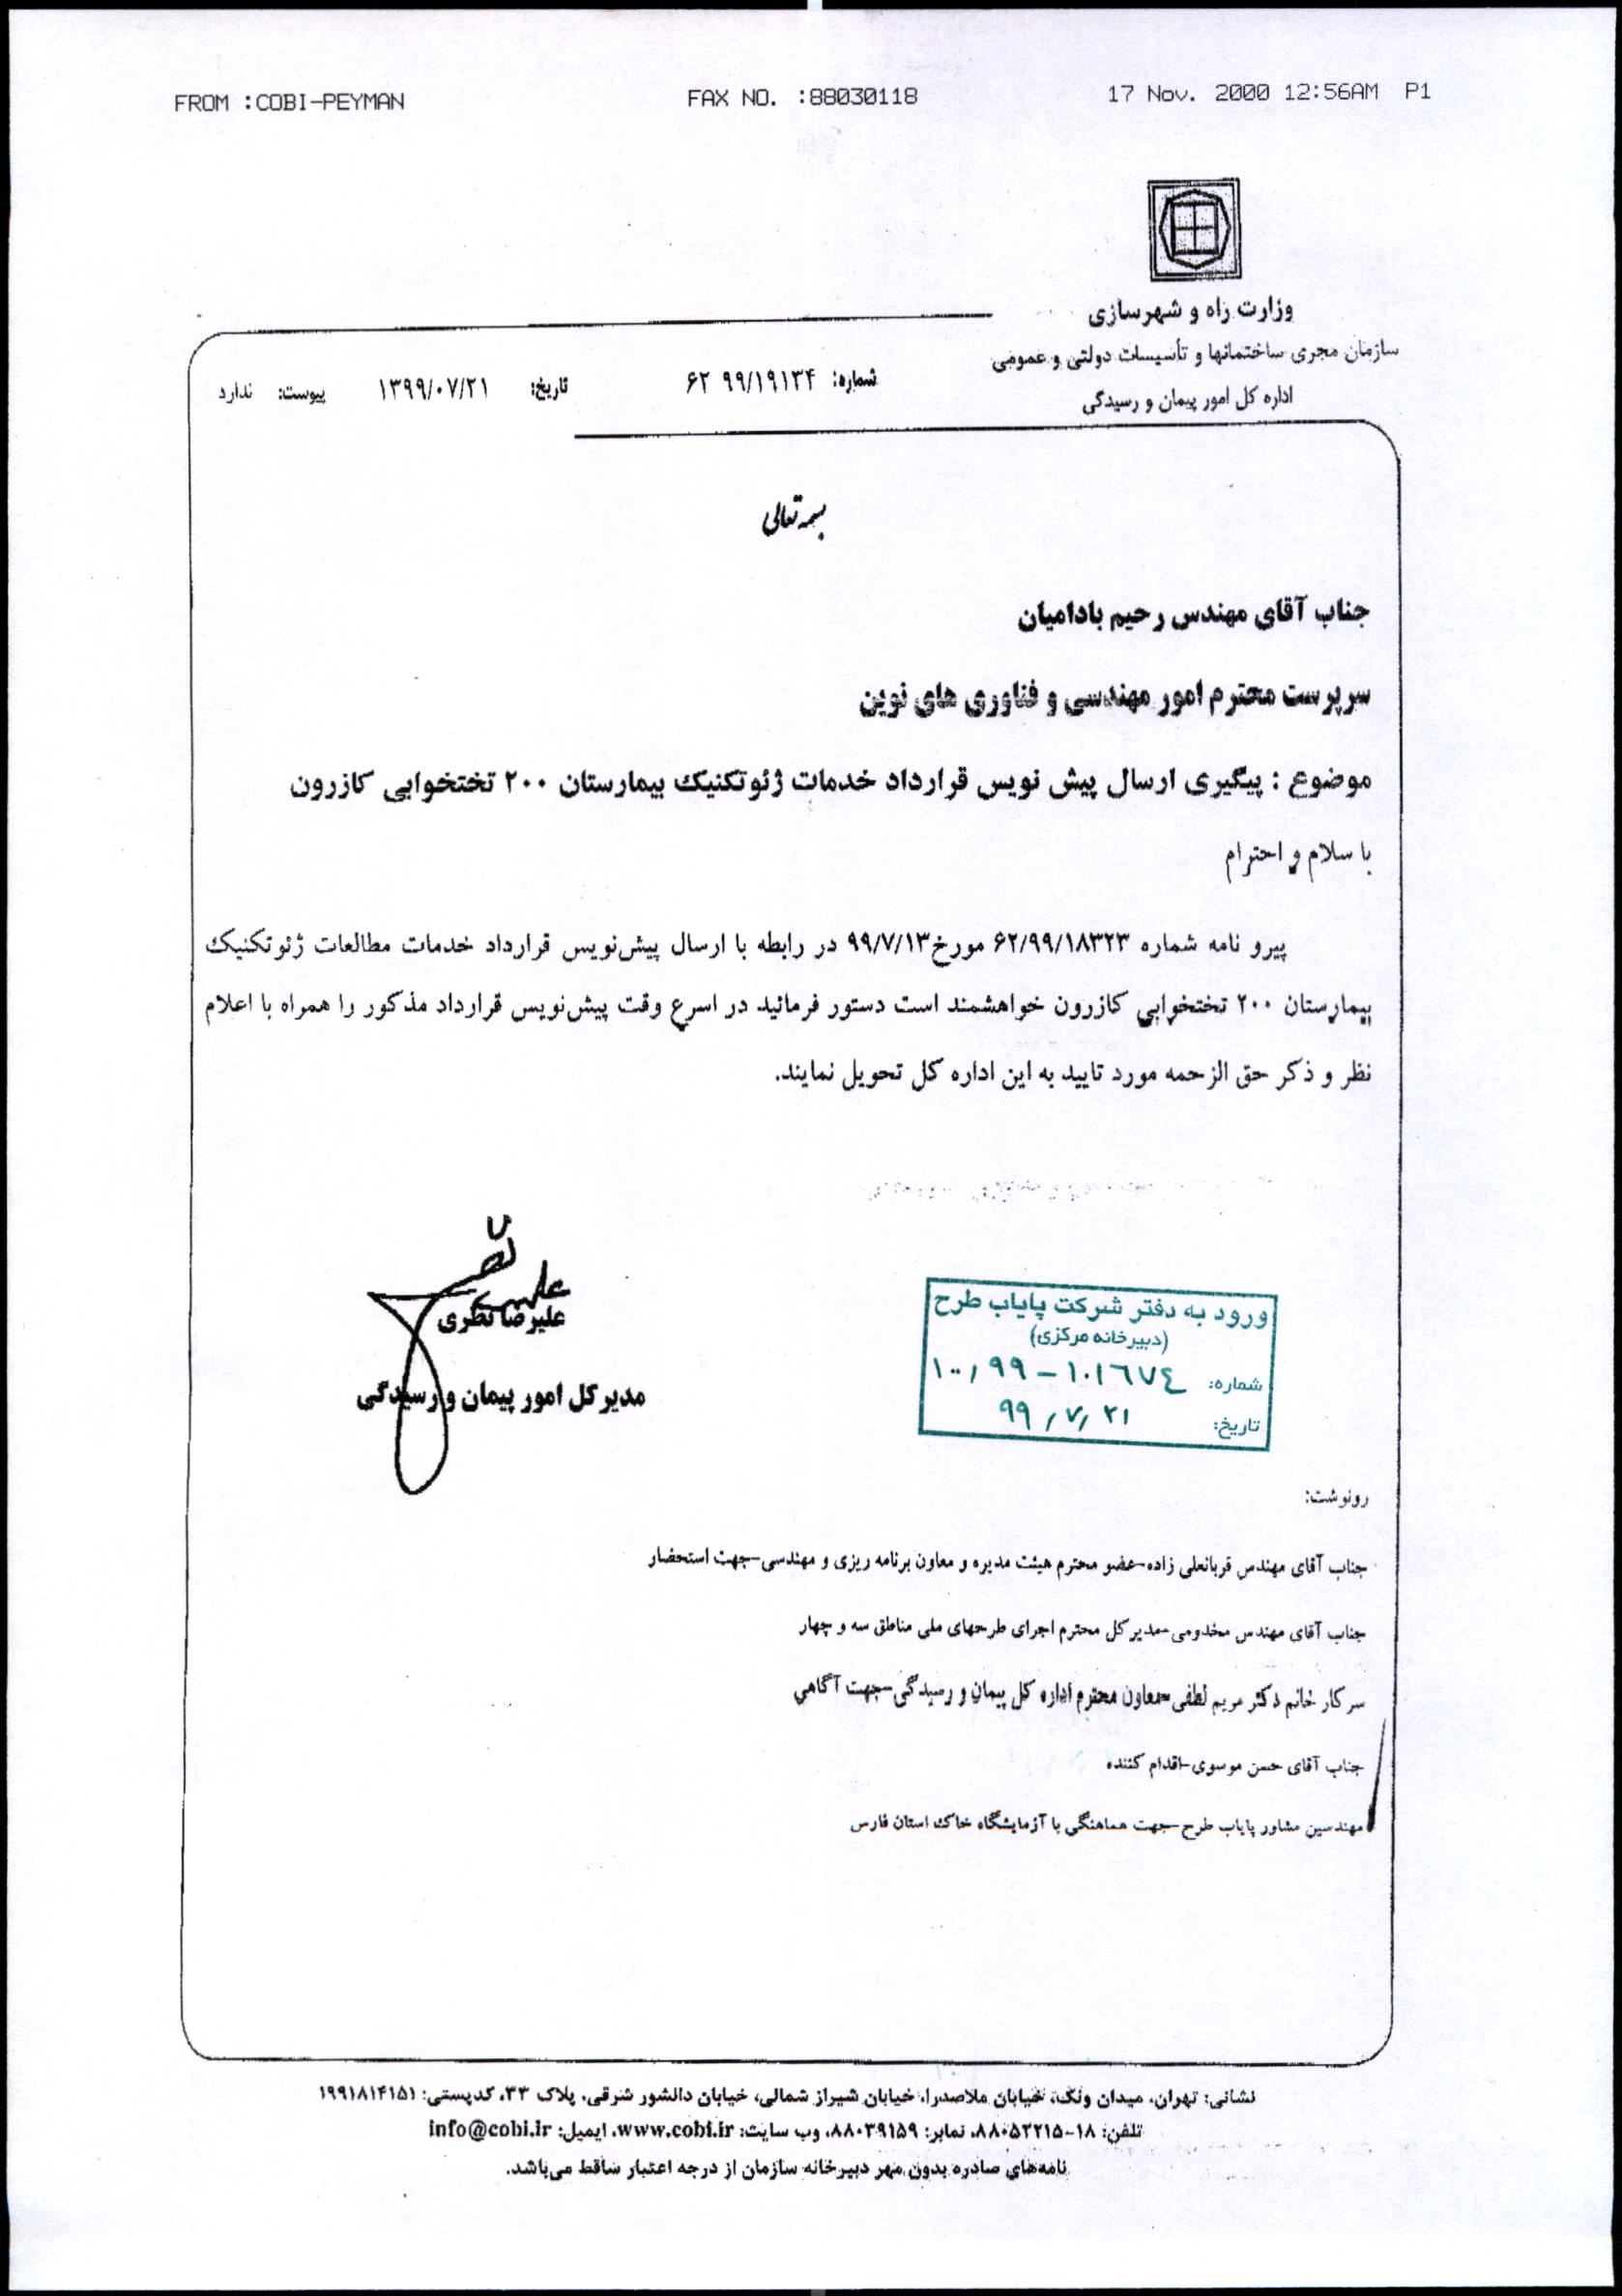 FROM :COBI-PEYMAN FAX NO. :88030118 17 Nov. 2000 12:56AM P1
وزارت راه و شهرسازی
سازمان مجری ساختمانها و تأسیسات دولتی و عمومی
اداره کل امور پیمان و رسیدگی
شماره: ۶۲ ۹۹/۱۹۱۳۴ تاریخ: ۱۳۹۹/۰۷/۲۱ پیوست: ندارد
بسمه تعالی
جناب آقای مهندس رحیم بادامیان
سرپرست محترم امور مهندسی و فناوری های نوین
موضوع : پیگیری ارسال پیش نویس قرارداد خدمات ژئوتکنیک بیمارستان ۲۰۰ تختخوابی کازرون
با سلام و احترام
پیرو نامه شماره ۶۲/۹۹/۱۸۳۲۳ مورخ۹۹/۷/۱۳ در رابطه با ارسال پیش‌نویس قرارداد خدمات مطالعات ژئوتکنیک
بیمارستان ۲۰۰ تختخوابی کازرون خواهشمند است دستور فرمائید در اسرع وقت پیش‌نویس قرارداد مذکور را همراه با اعلام
نظر و ذکر حق الزحمه مورد تایید به این اداره کل تحویل نمایند.
علیرضا نظری
مدیر کل امور پیمان و رسیدگی
ورود به دفتر شرکت پایاب طرح
(دبیرخانه مرکزی)
شماره: ۱۰۰/۹۹ – ۱۰۱۶۷٤
تاریخ: ۹۹/۷/۲۱
رونوشت:
جناب آقای مهندس قربانعلی زاده-عضو محترم هیئت مدیره و معاون برنامه ریزی و مهندسی-جهت استحضار
جناب آقای مهندس مخدومی-مدیر کل محترم اجرای طرحهای ملی مناطق سه و چهار
سرکار خانم دکتر مریم لطفی-معاون محترم اداره کل پیمان و رسیدگی-جهت آگاهی
جناب آقای حسن موسوی-اقدام کننده
مهندسین مشاور پایاب طرح-جهت هماهنگی با آزمایشگاه خاک استان فارس
نشانی: تهران، میدان ونک، خیابان ملاصدرا، خیابان شیراز شمالی، خیابان دانشور شرقی، پلاک ۳۳، کدپستی: ۱۹۹۱۸۱۴۱۵۱
تلفن: ۱۸-۸۸۰۵۲۲۱۵، نمابر: ۸۸۰۳۹۱۵۹، وب سایت: www.cobi.ir، ایمیل: info@cobi.ir
نامه‌های صادره بدون مهر دبیرخانه سازمان از درجه اعتبار ساقط می‌باشد.